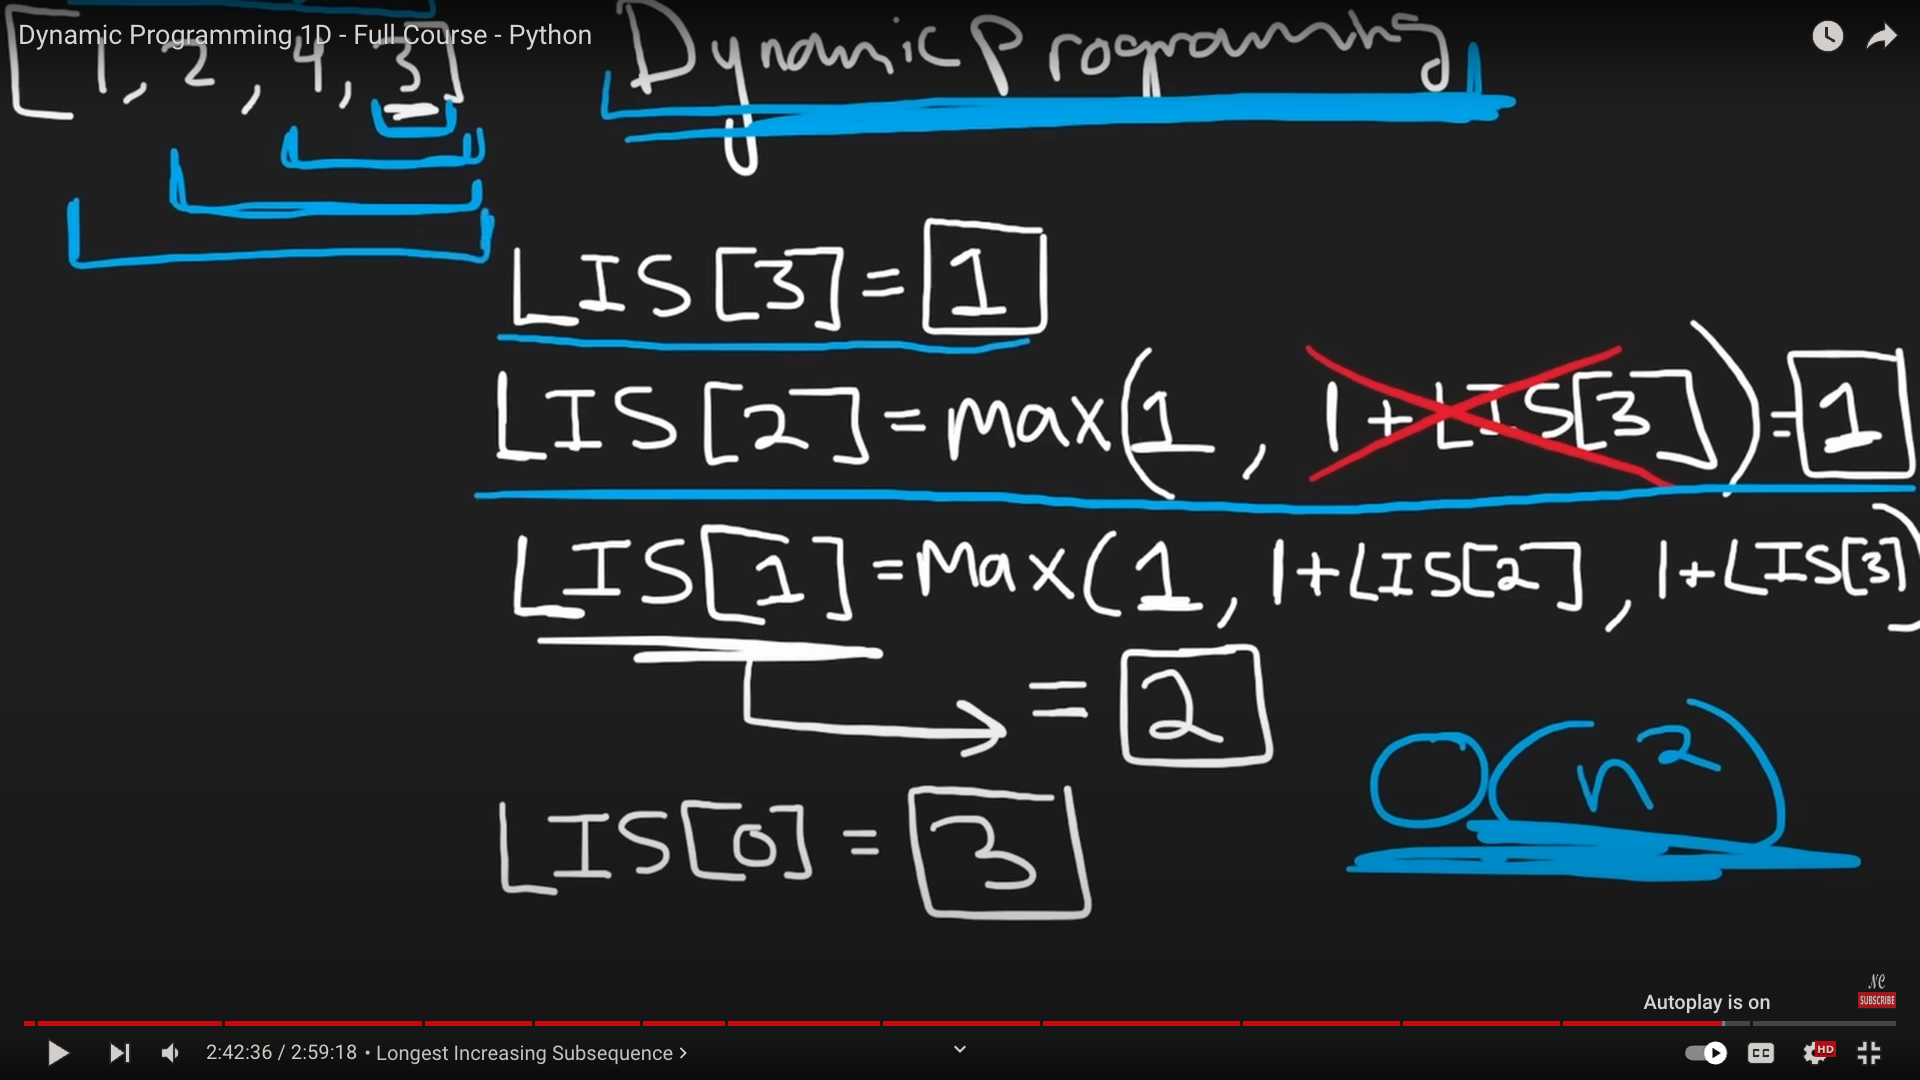 Dynamic Programming 1D - Full Course - Python
[1, 2, 4, 3]
Dynamic Programing
LIS[3] = 1
LIS[2] = max(1, 1+LIS[3]) = 1
LIS[1] = Max(1, 1+LIS[2], 1+LIS[3])
= 2
O(n²)
LIS[0] = 3
NC
SUBSCRIBE
Autoplay is on
2:42:36 / 2:59:18 • Longest Increasing Subsequence >
CC
HD